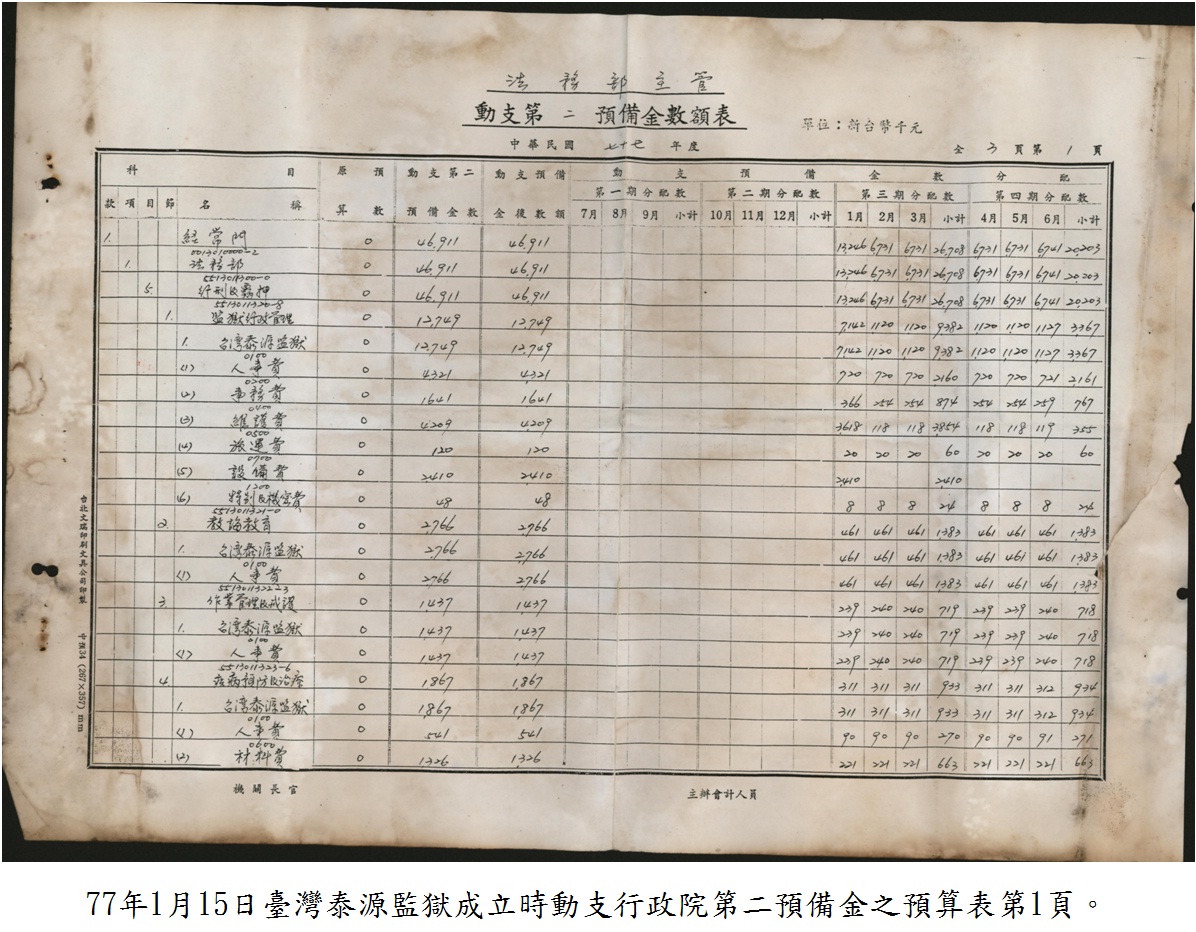 法務部主管
動支第二預備金數額表
單位：新台幣千元
中華民國 七十七 年度
全 3 頁第 1 頁
科目 原預算數 動支第二預備金數 動支預備金後數額 動支預備金數分配
款 項 目 節 名稱 第一期分配數 第二期分配數 第三期分配數 第四期分配數
7月 8月 9月 小計 10月 11月 12月 小計 1月 2月 3月 小計 4月 5月 6月 小計
1. 經常門 0 46,911 46,911 13,246 6731 6,731 26,708 6731 6731 6741 20,203
0013010000-2
1. 法務部 0 46,911 46,911 13,246 6,731 6,731 26,708 6731 6731 6741 20,203
5513011300-0
5. 行刑及羈押 0 46,911 46,911 13,246 6731 6731 26,708 6731 6731 6741 20,203
5513011320-8
1. 監獄行政管理 0 12,749 12,749 7,142 1120 1120 9382 1120 1,120 1127 3,367
1. 台湾泰源監獄 0 12,749 12,749 7,142 1120 1120 9,382 1,120 1120 1,127 3367
0100
(1) 人事費 0 4321 4,321 720 720 720 2160 720 720 721 2,161
0200
(2) 事務費 0 1641 1641 366 254 254 874 254 254 259 767
0400
(3) 維護費 0 4209 4,209 3618 118 118 3,854 118 118 119 355
0500
(4) 旅運費 0 120 120 20 20 20 60 20 20 20 60
0700
(5) 設備費 0 2,410 2,410 2,410 2,410
1200
(6) 特別及機密費 0 48 48 8 8 8 24 8 8 8 24
5513011321-0
2. 教誨教育 0 2,766 2,766 461 461 461 1,383 461 461 461 1,383
1. 台湾泰源監獄 0 2,766 2,766 461 461 461 1,383 461 461 461 1383
0100
(1) 人事費 0 2766 2,766 461 461 461 1383 461 461 461 1,383
3. 作業管理及戒護 0 1437 1437 239 240 240 719 239 239 240 718
1. 台湾泰源監獄 0 1437 1437 239 240 240 719 239 239 240 718
0100
(1) 人事費 0 1437 1437 239 240 240 719 239 239 240 718
5513011323-6
4. 疾病預防及治療 0 1,867 1,867 311 311 311 933 311 311 312 934
1. 台湾泰源監獄 0 1,867 1,867 311 311 311 933 311 311 312 934
0100
(1) 人事費 0 541 541 90 90 90 270 90 90 91 271
0600
(2) 材料費 0 1326 1,326 221 221 221 663 221 221 221 663
機關長官 主辦會計人員
台北文瑞印刷文具公司印製 (267×357) mm
77年1月15日臺灣泰源監獄成立時動支行政院第二預備金之預算表第1頁。